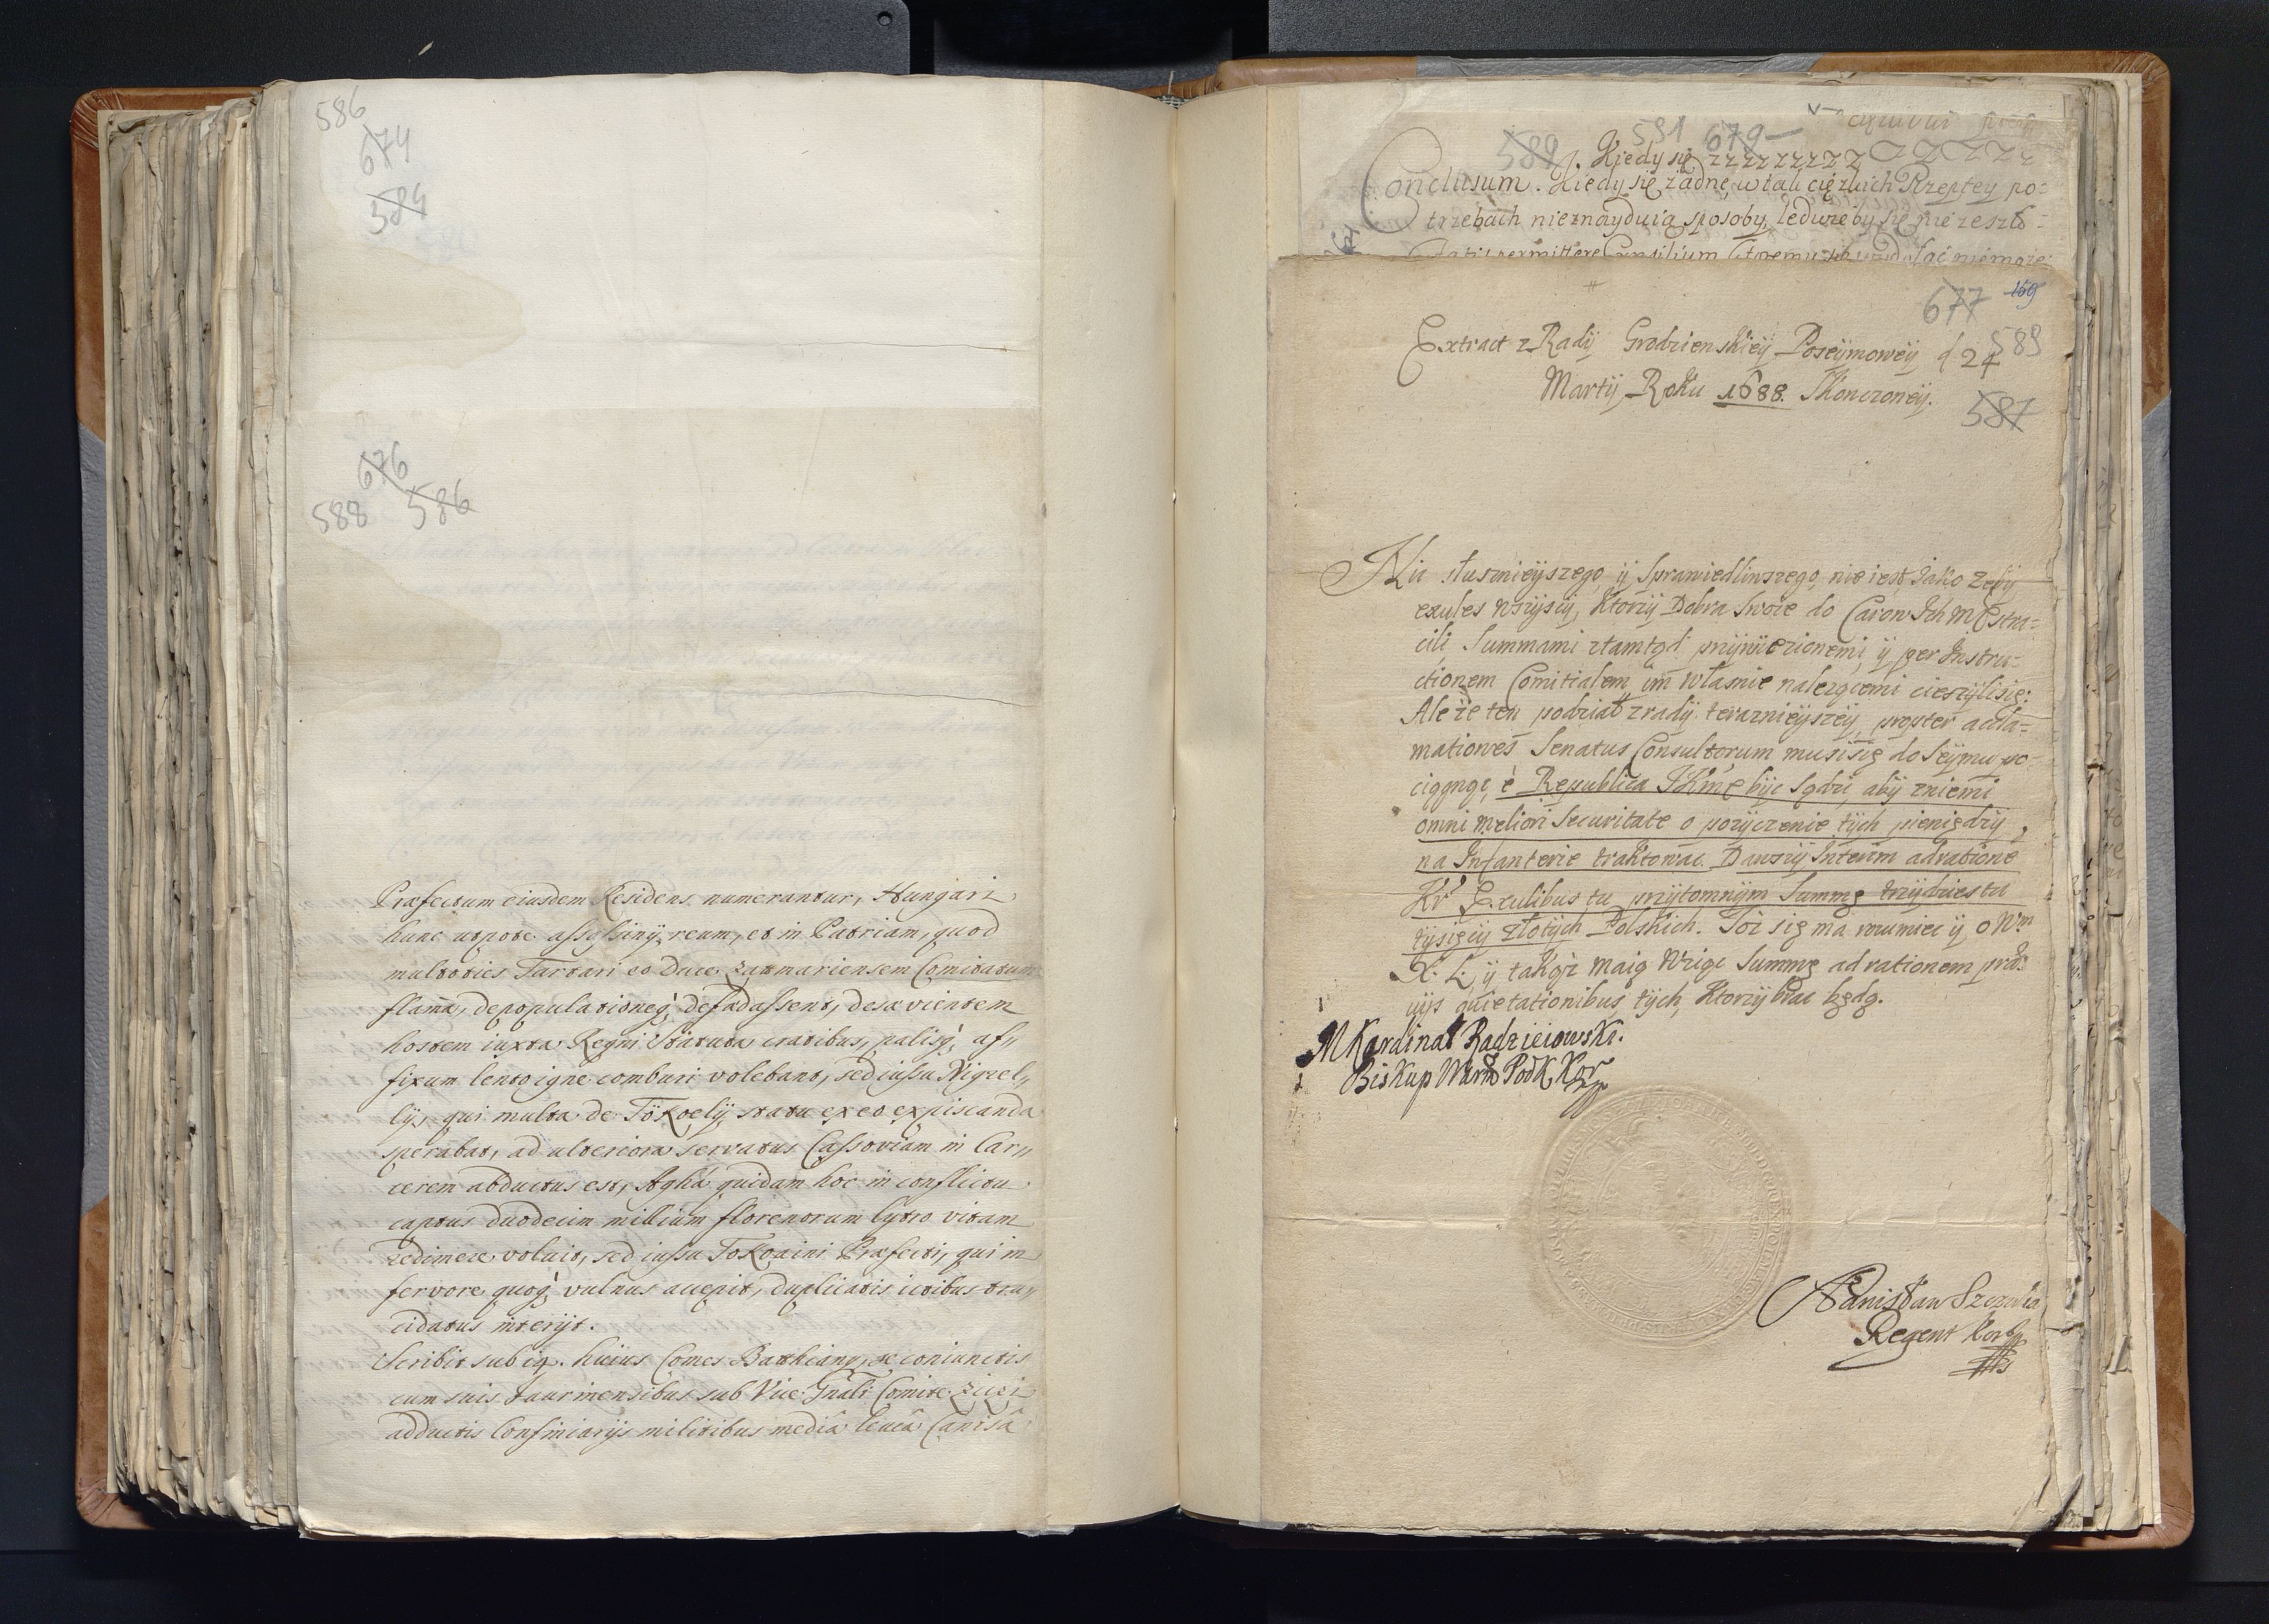 586
674
584
676
588 586
Præfectum eiusdem Residens numerantur, Hungari
hunc utpote assassinÿ reum, et in Patriam, quod
multoties Tartari eo Duce Zatmariensem Comitatum
flamã, depopulationeq́; defædassent, desævientem
hostem iuxta Regni Statuta cratibus, palisq́; af„
fixum lento igne comburi volebant, sed iussu Nigrel„
lÿ, qui multa de Tökoelÿ statu ex eo expiscanda
sperabat, ad ulteriora servatus Cassoviam in Car„
cerem abductus est, Agha quidam hoc in conflictu
captus duodecim millium florenorum lytro vitam
redimere voluit, sed iussu Tokoaini Præfecti, qui in
fervore quoq́; vulnus accepit, duplicatis ictibus tru„
cidatus interijt.
Scribit sub 14. huius Comes Batthiany, se coniunctis
cum suis Jaurinensibus sub Vice Gñali Comite Zici
adductis Confiniarijs militibus mediâ leucâ Canisâ
589 591 679
Kiedy się zzzzzzzzz
Conclusum. Kiedy się żadne, w tali ciężkich Rzeptey po=
trzebach nieznayduią sposoby, ledwieby się nie zeszło=
permittere Consilium ktoremu
677 169
Extract z Radÿ Grodzienskieÿ Poseÿmoweÿ d 24
589
Martÿ Roku 1688. Skonczoneÿ.
587
Nic słusznieÿszego ÿ Sprawiedliwszego nie iest Jako zebÿ
exules wszÿscÿ, Ktorzÿ Dobra Swoie do Carow Ich Mc̃ stra=
cili Summami ztamtąd przÿwiezionemi, ÿ per Instru=
ctionem Comitialem im własnie nalezącemi cieszÿlisię:
Ale ze ten podział z radÿ teraznieÿszeÿ, propter accla=
mationes Senatus Consultorum musisię do Seÿmu po=
ciągnąc, è Republica JKmc̃ bÿc Sądzi, abÿ zniemi
omni meliori Securitate o pozÿczenie tÿch pieniędzÿ,
na Infanterie traktowac. Dawszÿ Interim ad ratione
Exulibus tu przÿtomnÿm Summę trzÿdziestu
tÿsięcÿ złotÿch Polskich. Toż się ma rozumiec ÿ o Wm
X. L. ÿ takąż maią Wziąc Summę ad rationem præ
uÿs quietationibus tÿch, Ktorzÿ brac będą.
M Kardinał Radzieiowski.
Biskup Warm Podk Kor
Stanisław Szczuka
Regent Kor